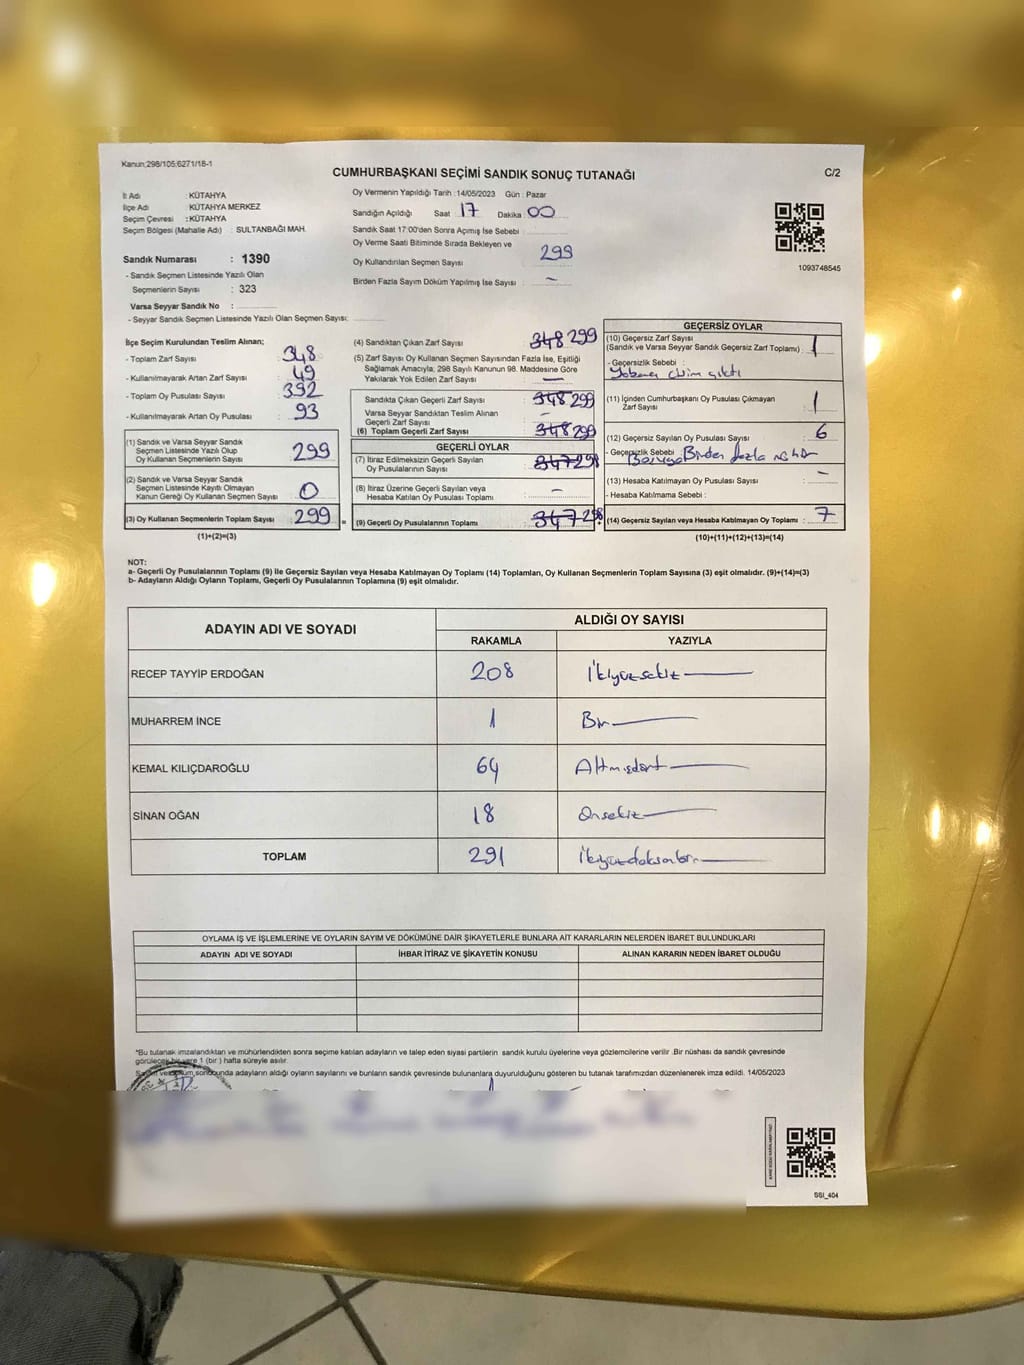 Kanun:298/105;6271/18-1
CUMHURBAŞKANI SEÇİMİ SANDIK SONUÇ TUTANAĞI
C/2
İl Adı : KÜTAHYA
İlçe Adı : KÜTAHYA MERKEZ
Seçim Çevresi : KÜTAHYA
Seçim Bölgesi (Mahalle Adı) : SULTANBAĞI MAH.
Sandık Numarası : 1390
- Sandık Seçmen Listesinde Yazılı Olan
Seçmenlerin Sayısı : 323
Varsa Seyyar Sandık No :
- Seyyar Sandık Seçmen Listesinde Yazılı Olan Seçmen Sayısı:
Oy Vermenin Yapıldığı Tarih :14/05/2023 Gün : Pazar
Sandığın Açıldığı Saat 17 Dakika 00
Sandık Saat 17:00'den Sonra Açılmış İse Sebebi :
Oy Verme Saati Bitiminde Sırada Bekleyen ve
Oy Kullandırılan Seçmen Sayısı 299
Birden Fazla Sayım Döküm Yapılmış İse Sayısı : –
1093748545
İlçe Seçim Kurulundan Teslim Alınan;
- Toplam Zarf Sayısı : 348
- Kullanılmayarak Artan Zarf Sayısı : 49
- Toplam Oy Pusulası Sayısı : 392
- Kullanılmayarak Artan Oy Pusulası : 93
(1) Sandık ve Varsa Seyyar Sandık
Seçmen Listesinde Yazılı Olup
Oy Kullanan Seçmenlerin Sayısı 299
(2) Sandık ve Varsa Seyyar Sandık
Seçmen Listesinde Kayıtlı Olmayan
Kanun Gereği Oy Kullanan Seçmen Sayısı : 0
(3) Oy Kullanan Seçmenlerin Toplam Sayısı : 299 =
(1)+(2)=(3)
(4) Sandıktan Çıkan Zarf Sayısı : 348 299
(5) Zarf Sayısı Oy Kullanan Seçmen Sayısından Fazla İse, Eşitliği
Sağlamak Amacıyla, 298 Sayılı Kanunun 98. Maddesine Göre
Yakılarak Yok Edilen Zarf Sayısı : –
Sandıkta Çıkan Geçerli Zarf Sayısı : 348 299
Varsa Seyyar Sandıktan Teslim Alınan
Geçerli Zarf Sayısı : –
(6) Toplam Geçerli Zarf Sayısı : 348 299
GEÇERLİ OYLAR
(7) İtiraz Edilmeksizin Geçerli Sayılan
Oy Pusulalarının Sayısı : 347 298
(8) İtiraz Üzerine Geçerli Sayılan veya
Hesaba Katılan Oy Pusulası Toplamı : –
(9) Geçerli Oy Pusulalarının Toplamı : 347 298
GEÇERSİZ OYLAR
(10) Geçersiz Zarf Sayısı
(Sandık ve Varsa Seyyar Sandık Geçersiz Zarf Toplamı) : 1
- Geçersizlik Sebebi :
çıktı
(11) İçinden Cumhurbaşkanı Oy Pusulası Çıkmayan
Zarf Sayısı : 1
(12) Geçersiz Sayılan Oy Pusulası Sayısı : 6
- Geçersizlik Sebebi : Birden fazla
(13) Hesaba Katılmayan Oy Pusulası Sayısı : –
- Hesaba Katılmama Sebebi :
(14) Geçersiz Sayılan veya Hesaba Katılmayan Oy Toplamı : 7
(10)+(11)+(12)+(13)=(14)
NOT:
a- Geçerli Oy Pusulalarının Toplamı (9) ile Geçersiz Sayılan veya Hesaba Katılmayan Oy Toplamı (14) Toplamları, Oy Kullanan Seçmenlerin Toplam Sayısına (3) eşit olmalıdır. (9)+(14)=(3)
b- Adayların Aldığı Oyların Toplamı, Geçerli Oy Pusulalarının Toplamına (9) eşit olmalıdır.
ADAYIN ADI VE SOYADI
ALDIĞI OY SAYISI
RAKAMLA YAZIYLA
RECEP TAYYİP ERDOĞAN 208 İkiyüzsekiz
MUHARREM İNCE 1 Bir
KEMAL KILIÇDAROĞLU 64 Altmışdört
SİNAN OĞAN 18 Onsekiz
TOPLAM 291 İkiyüzdoksanbir
OYLAMA İŞ VE İŞLEMLERİNE VE OYLARIN SAYIM VE DÖKÜMÜNE DAİR ŞİKAYETLERLE BUNLARA AİT KARARLARIN NELERDEN İBARET BULUNDUKLARI
ADAYIN ADI VE SOYADI İHBAR İTİRAZ VE ŞİKAYETİN KONUSU ALINAN KARARIN NEDEN İBARET OLDUĞU
*Bu tutanak imzalandıktan ve mühürlendikten sonra seçime katılan adayların ve talep eden siyasi partilerin sandık kurulu üyelerine veya gözlemcilerine verilir .Bir nüshası da sandık çevresinde
görülecek bir yere 1 (bir ) hafta süreyle asılır.
sonunda adayların aldığı oyların sayılarını ve bunların sandık çevresinde bulunanlara duyurulduğunu gösteren bu tutanak tarafımızdan düzenlenerek imza edildi. 14/05/2023
SSI_404